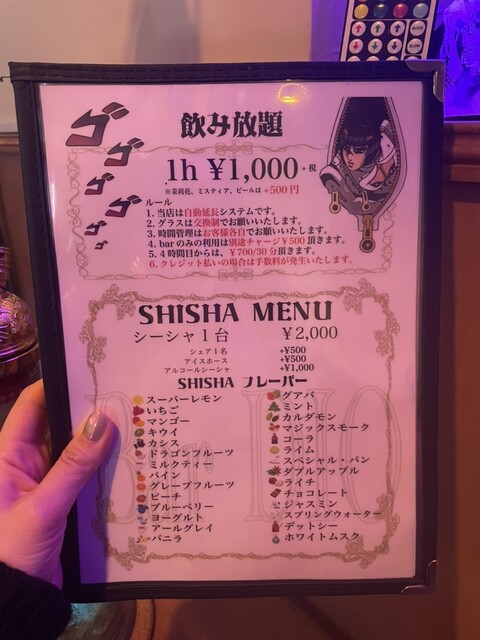 ゴゴゴゴゴ
飲み放題
1h ¥1,000 +税
※茉莉花、ミスティア、ビールは+500円
ルール
1. 当店は自動延長システムです。
2. グラスは交換制でお願いいたします。
3. 時間管理はお客様各自でお願いいたします。
4. barのみの利用は別途チャージ¥500頂きます。
5. 4時間目からは、¥700/30分頂きます。
6. クレジット払いの場合は手数料が発生いたします。
SHISHA MENU
シーシャ1台 ¥2,000
シェア1名 +¥500
アイスホース +¥500
アルコールシーシャ +¥1,000
SHISHA フレーバー
スーパーレモン
いちご
マンゴー
キウイ
カシス
ドラゴンフルーツ
ミルクティー
パイン
グレープフルーツ
ピーチ
ブルーベリー
ヨーグルト
アールグレイ
バニラ
グアバ
ミント
カルダモン
マジックスモーク
コーラ
ライム
スペシャル・パン
ダブルアップル
ライチ
チョコレート
ジャスミン
スプリングウォーター
デットシー
ホワイトムスク